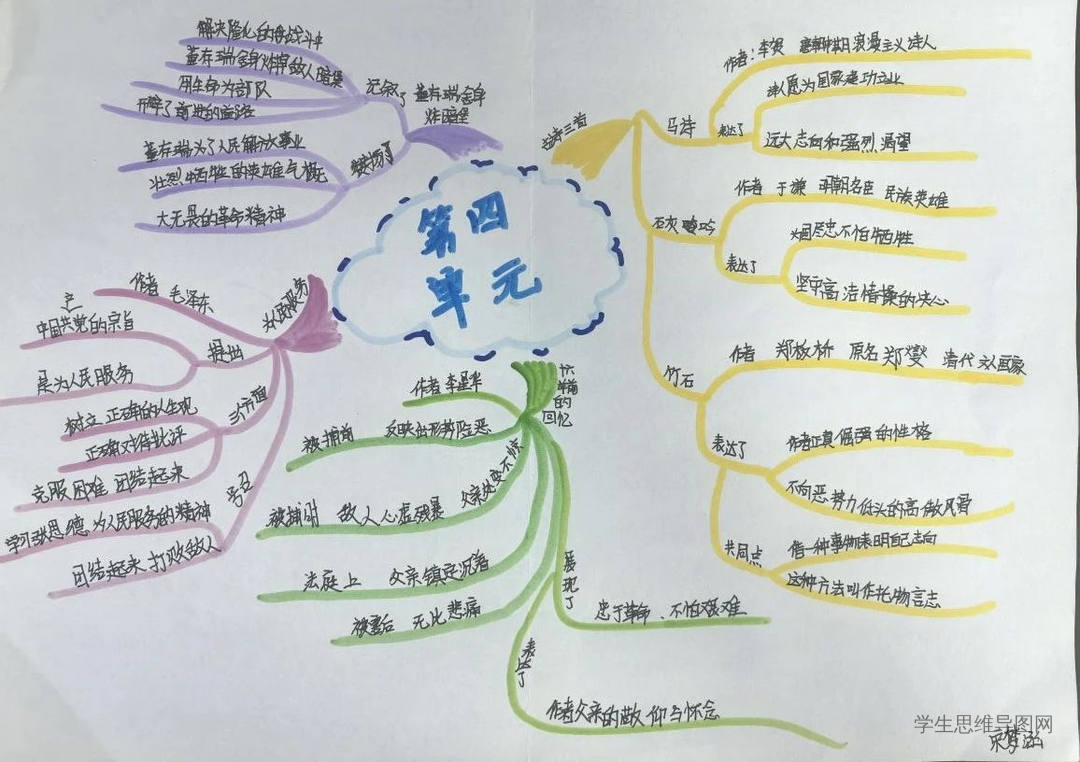 第四
单元
古诗三首
马诗
作者：李贺 唐朝中期浪漫主义诗人
表达了
诗人愿为国家建功立业
远大志向和强烈渴望
石灰吟
作者 于谦 明朝名臣 民族英雄
表达了
尽忠不怕牺牲
坚守高洁情操的决心
竹石
作者 郑板桥 原名 郑燮 清代 书画家
表达了
作者正真倔强的性格
不向恶势力低头的高傲风骨
共同点
借一种事物表明自己志向
这种方法叫作托物言志
十六年前的回忆
作者 李星华
被捕前 反映出形势险恶
被捕时 敌人心虚残暴 父亲处变不惊
法庭上 父亲镇定沉着
被害后 无比悲痛
展现了
忠于革命、不怕艰难
表达了
作者父亲的敬仰与怀念
为人民服务
作者 毛泽东
提出
中国共产党的宗旨
是为人民服务
三个方面
树立正确的人生观
正确对待批评
克服困难 团结起来
号召
学习张思德为人民服务的精神
团结起来打败敌人
董存瑞舍身
炸暗堡
记叙了
解决隆化的战斗中
董存瑞舍身炸掉敌人暗堡
用生命为部队
开辟了前进的道路
赞扬了
董存瑞为了人民解放事业
壮烈牺牲的英雄气概
大无畏的革命精神
学生思维导图网